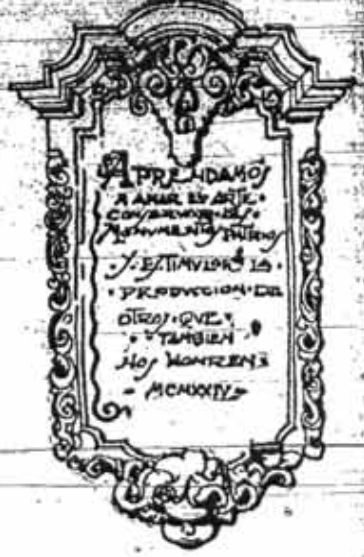 APRENDAMOS
A AMAR EL ARTE·
CONSERVAR·LOS·
MONUMENTOS PATRIOS
·Y·ESTIMULAR·A LA·
·PRODUCCION·DE
OTROS·QUE·
·TAMBIEN
NOS HONREN
-MCMXXIV-